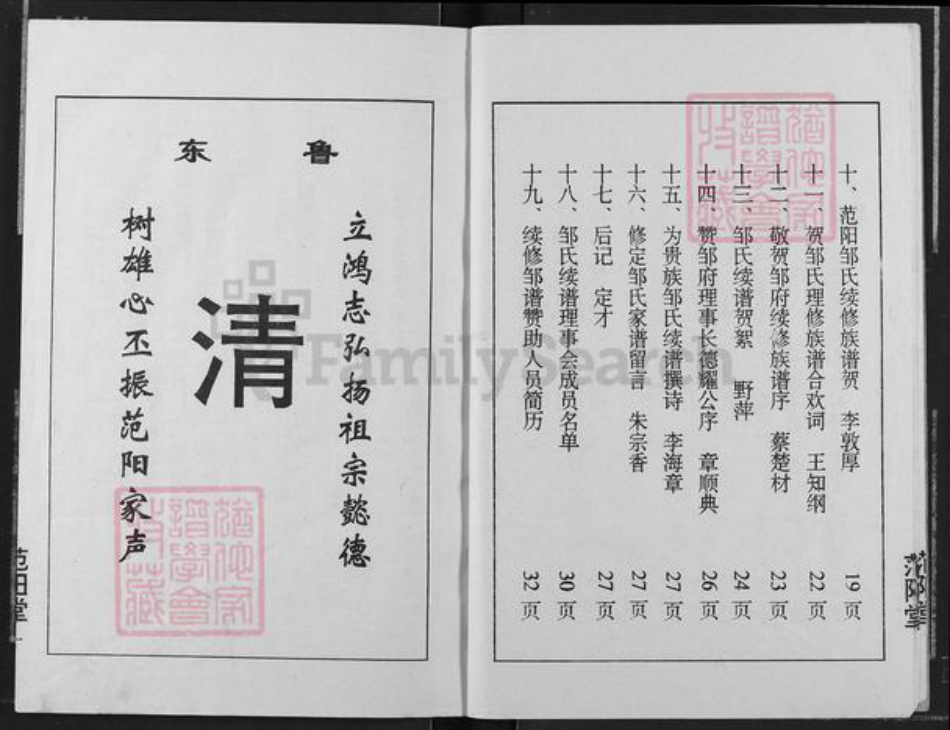 十、范阳邹氏续修族谱贺 李敦厚 19页
十一、贺邹氏理修族谱合欢词 王知纲 22页
十二、敬贺邹府续修族谱序 蔡楚材 23页
十三、邹氏续谱贺絮 野萍 24页
十四、赞邹府理事长德耀公序 章顺典 26页
十五、为贵族邹氏续谱撰诗 李海章 27页
十六、修定邹氏家谱留言 朱宗香 27页
十七、后记 定才 27页
十八、邹氏续谱理事会成员名单 30页
十九、续修邹谱赞助人员简历 32页
范阳堂
鲁东
立鸿志弘扬祖宗懿德
清
树雄心丕振范阳家声
范阳堂
FamilySearch